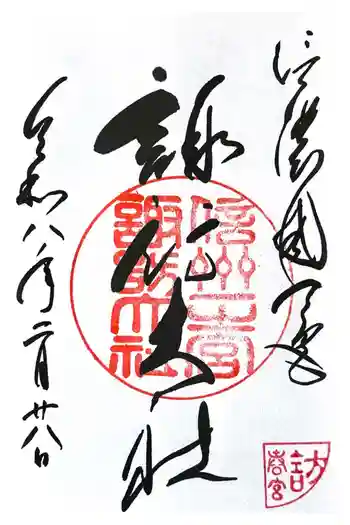 信濃國一之宮
諏訪大社
信州一之宮
諏訪大社
令和八年二月廿八日
諏訪
春宮